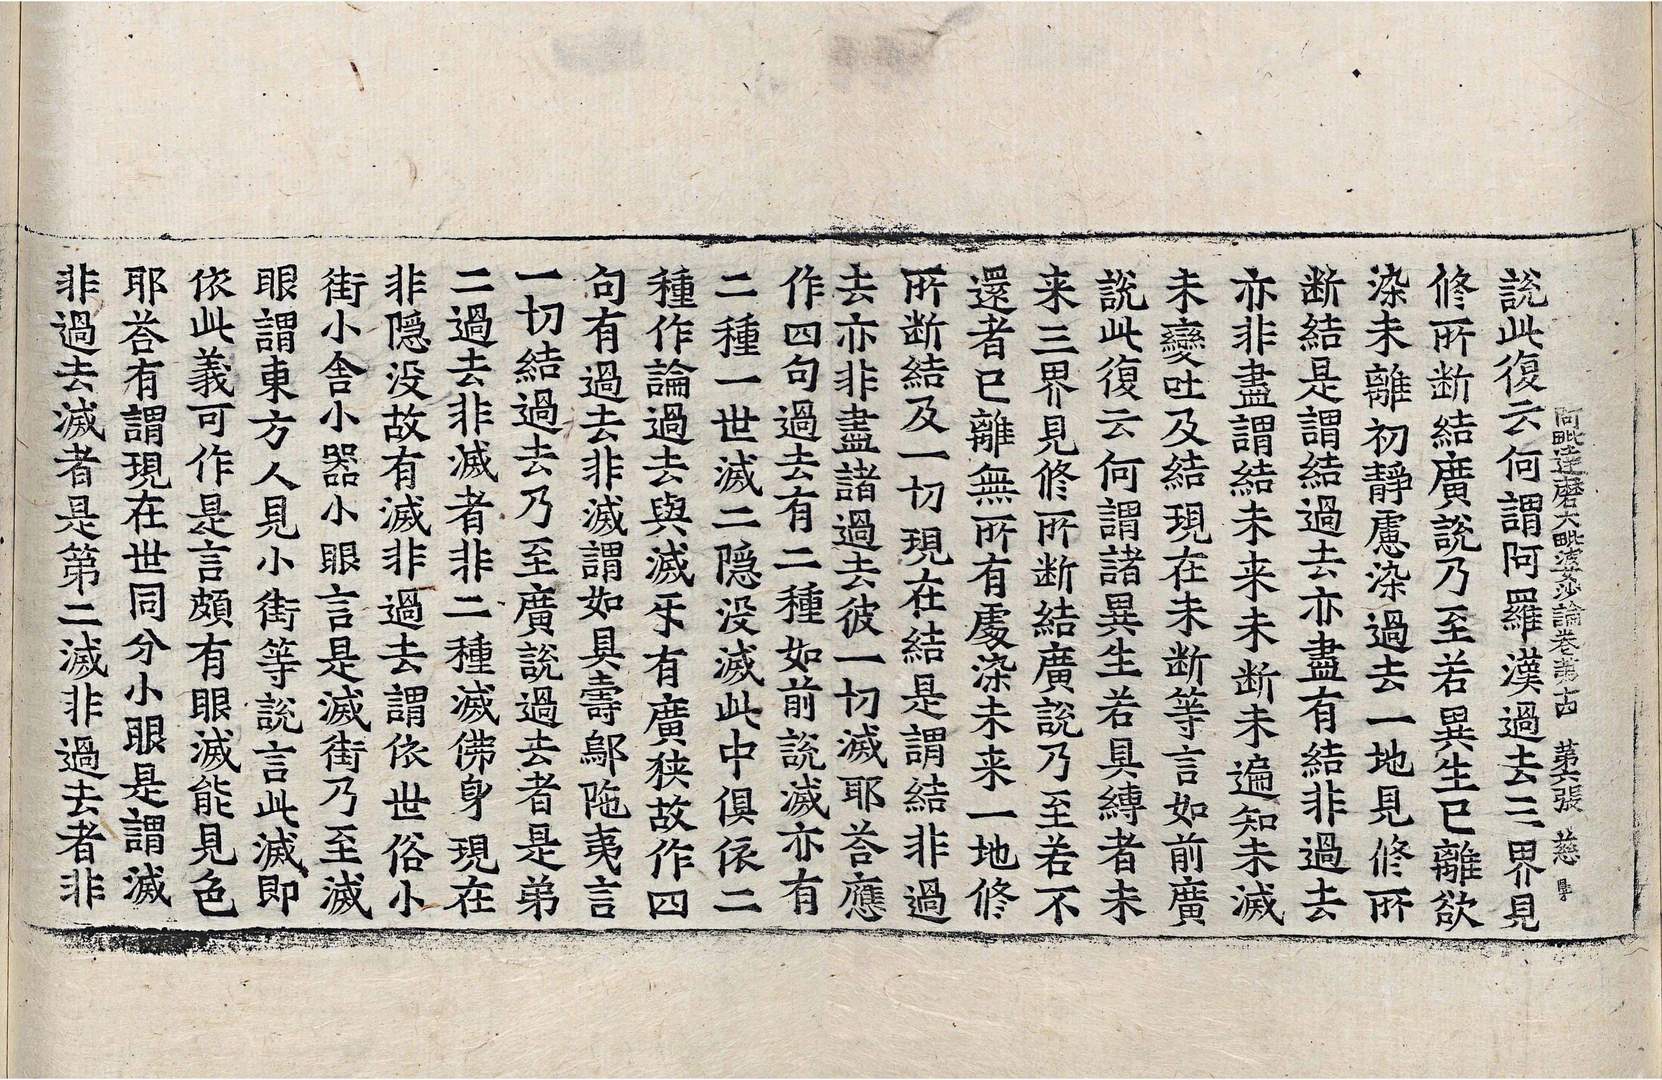 阿毗達磨大毗婆沙論卷第十四　第六張　慈
說此復云何謂阿羅漢過去三界見
修所断結廣說乃至若異生已離欲
染未離初靜慮染過去一地見修所
断結是謂結過去亦盡有結非過去
亦非盡謂結未来未断未遍知未滅
未變吐及結現在未断等言如前廣
說此復云何謂諸異生若具縛者未
来三界見修所断結廣說乃至若不
還者已離無所有處染未来一地修
所断結及一切現在結是謂結非過
去亦非盡諸過去彼一切滅耶荅應
作四句過去有二種如前說滅亦有
二種一世滅二隱没滅此中俱依二
種作論過去與滅㸦有廣狹故作四
句有過去非滅謂如具壽鄔陁夷言
一切結過去乃至廣說過去者是弟
二過去非滅者非二種滅佛身現在
非隱没故有滅非過去謂依世俗小
街小舍小器小眼言是滅街乃至滅
眼謂東方人見小街等說言此滅即
依此義可作是言頗有眼滅能見色
耶荅有謂現在世同分小眼是謂滅
非過去滅者是第二滅非過去者非